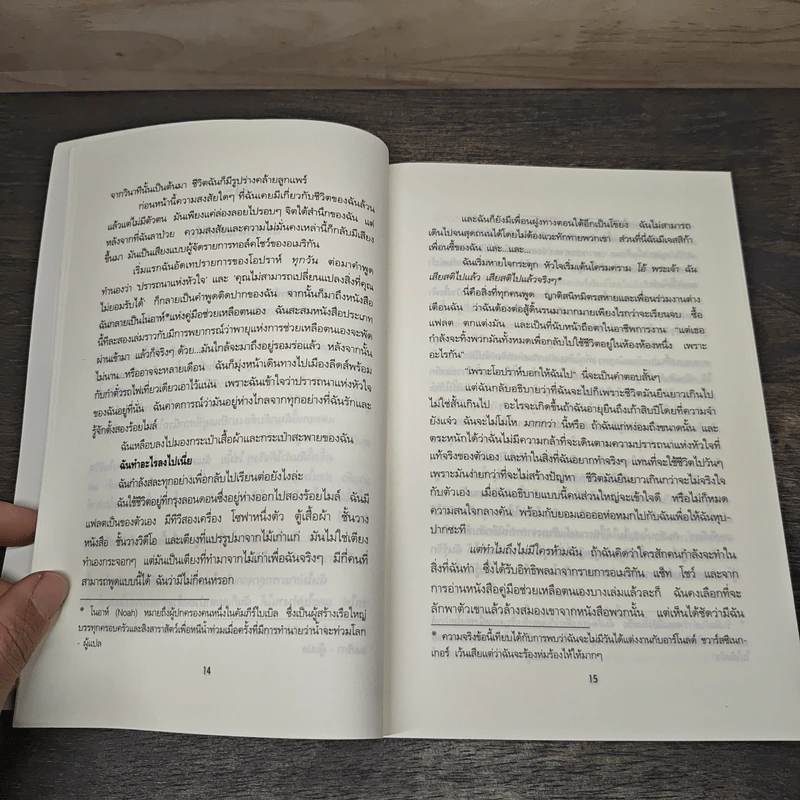 จากวินาทีนั้นเป็นต้นมา ชีวิตฉันก็มีรูปร่างคล้ายลูกแพร์
ก่อนหน้านี้ความสงสัยใดๆ ที่ฉันเคยมีเกี่ยวกับชีวิตของฉันล้วน
แล้วแต่ไม่มีตัวตน มันเพียงแค่ล่องลอยไปรอบๆ จิตใต้สำนึกของฉัน แต่
หลังจากที่ฉันลาป่วย ความสงสัยและความไม่มั่นคงเหล่านี้ก็กลับมีเสียง
ขึ้นมา มันเป็นเสียงแบบผู้จัดรายการทอล์คโชว์ของอเมริกัน
เริ่มแรกฉันอัดเทปรายการของโอปราห์ ทุกวัน ต่อมาคำพูด
ทำนองว่า 'ปรารถนาแห่งหัวใจ' และ 'คุณไม่สามารถเปลี่ยนแปลงสิ่งที่คุณ
ไม่ยอมรับได้' ก็กลายเป็นคำพูดติดปากของฉัน จากนั้นก็มาถึงหนังสือ
ฉันกลายเป็นโนอาห์*แห่งคู่มือช่วยเหลือตนเอง ฉันสะสมหนังสือประเภท
นี้ทีละสองเล่มราวกับมีการพยากรณ์ว่าพายุแห่งการช่วยเหลือตนเองจะพัด
ผ่านเข้ามา แล้วก็จริงๆ ด้วย...มันใกล้จะมาถึงอยู่รอมร่อแล้ว หลังจากนั้น
ไม่นาน...หรืออาจจะหลายเดือน ฉันก็มุ่งหน้าเดินทางไปเมืองลีดส์พร้อม
กับกำตั๋วรถไฟเที่ยวเดียวเอาไว้แน่น เพราะฉันเข้าใจว่าปรารถนาแห่งหัวใจ
ของฉันอยู่ที่นั่น ฉันคาดการณ์ว่ามันอยู่ห่างไกลจากทุกอย่างที่ฉันรักและ
รู้จักตั้งสองร้อยไมล์
ฉันเหลือบลงไปมองกระเป๋าเสื้อผ้าและกระเป๋าสะพายของฉัน
ฉันทำอะไรลงไปเนี่ย
ฉันกำลังสละทุกอย่างเพื่อกลับไปเรียนต่อยังไงล่ะ
ฉันใช้ชีวิตอยู่ที่กรุงลอนดอนซึ่งอยู่ห่างออกไปสองร้อยไมล์ ฉันมี
แฟลตเป็นของตัวเอง มีทีวีสองเครื่อง โซฟาหนึ่งตัว ตู้เสื้อผ้า ชั้นวาง
หนังสือ ชั้นวางวิดีโอ และเตียงที่แปรรูปมาจากไม้เก่าแก่ มันไม่ใช่เตียง
ทำเองกระจอกๆ แต่มันเป็นเตียงที่ทำมาจากไม้เก่าเพื่อฉันจริงๆ มีกี่คนที่
สามารถพูดแบบนี้ได้ ฉันว่ามีไม่กี่คนหรอก
* โนอาห์ (Noah) หมายถึงผู้ปกครองคนหนึ่งในคัมภีร์ไบเบิล ซึ่งเป็นผู้สร้างเรือใหญ่
บรรทุกครอบครัวและสิงสาราสัตว์เพื่อหนีน้ำท่วมเมื่อครั้งที่มีการทำนายว่าน้ำจะท่วมโลก
- ผู้แปล
14
และฉันก็ยังมีเพื่อนฝูงทางตอนใต้อีกเป็นโขยง ฉันไม่สามารถ
เดินไปจนสุดถนนได้โดยไม่ต้องแวะทักทายพวกเขา ส่วนที่นี่ฉันมีเจสสิก้า
เพื่อนซี้ของฉัน และ...และ...
ฉันเริ่มหายใจกระตุก หัวใจเริ่มเต้นโครมคราม โอ้ พระเจ้า ฉัน
เสียสติไปแล้ว เสียสติไปแล้วจริงๆ*
นี่คือสิ่งที่ทุกคนพูด ญาติสนิทมิตรสหายและเพื่อนร่วมงานต่าง
เตือนฉัน ว่าฉันต้องต่อสู้ดิ้นรนมามากมายเพียงไรกว่าจะเรียนจบ ซื้อ
แฟลต ตกแต่งมัน และเป็นที่นับหน้าถือตาในอาชีพการงาน "แต่เธอ
กำลังจะทิ้งพวกมันทั้งหมดเพื่อกลับไปใช้ชีวิตอยู่ในห้องห้องหนึ่ง เพราะ
อะไรกัน"
"เพราะโอปราห์บอกให้ฉันไป" นี่จะเป็นคำตอบสั้นๆ
แต่ฉันกลับอธิบายว่าที่ฉันจะไปก็เพราะชีวิตมันยืนยาวเกินไป
ไม่ใช่สั้นเกินไป อะไรจะเกิดขึ้นถ้าฉันอายุยืนถึงเก้าสิบปีโดยที่ความจำ
ยังแจ๋ว ฉันจะไม่โมโห มากกว่า นี้หรือ ถ้าฉันแก่หง่อมถึงขนาดนั้น และ
ตระหนักได้ว่าฉันไม่มีความกล้าที่จะเดินตามความปรารถนาแห่งหัวใจที่
แท้จริงของตัวเอง และทำในสิ่งที่ฉันอยากทำจริงๆ แทนที่จะใช้ชีวิตไปวันๆ
เพราะมันง่ายกว่าที่จะไม่สร้างปัญหา ชีวิตมันยืนยาวเกินกว่าจะไม่จริงใจ
กับตัวเอง เมื่อฉันอธิบายแบบนี้คนส่วนใหญ่จะเข้าใจดี หรือไม่ก็หมด
ความสนใจกลางคัน พร้อมกับยอมเออออห่อหมกไปกับฉันเพื่อให้ฉันหุบ-
ปากซะที
แต่ทำไมถึงไม่มีใครห้ามฉัน ถ้าฉันคิดว่าใครสักคนกำลังจะทำใน
สิ่งที่ฉันทำ ซึ่งได้รับอิทธิพลมาจากรายการอเมริกัน แช็ท โชว์ และจาก
การอ่านหนังสือคู่มือช่วยเหลือตนเองบางเล่มแล้วละก็ ฉันคงเลือกที่จะ
ลักพาตัวเขาแล้วล้างสมองเขาจากหนังสือพวกนั้น แต่เห็นได้ชัดว่ามีฉัน
* ความจริงข้อนี้เทียบได้กับการพบว่าฉันจะไม่มีวันได้แต่งงานกับอาร์โนลด์ ชวาร์สซิเนก-
เกอร์ เว้นเสียแต่ว่าฉันจะร้องห่มร้องไห้ให้มากๆ
15